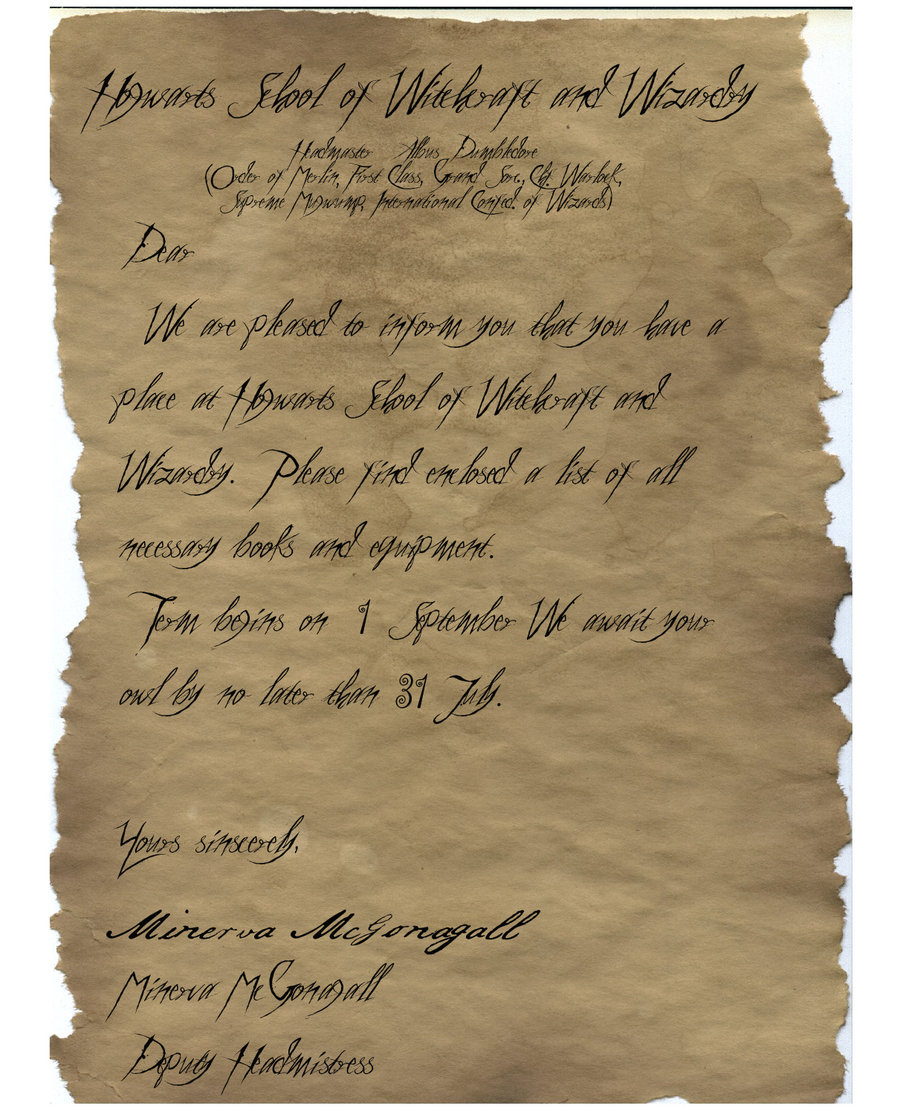 Hogwarts School of Witchcraft and Wizardry
Headmaster Albus Dumbledore
(Order of Merlin, First Class, Grand Sorc., Chf. Warlock,
Supreme Mugwump, International Confed. of Wizards)
Dear
We are pleased to inform you that you have a
place at Hogwarts School of Witchcraft and
Wizardry. Please find enclosed a list of all
necessary books and equipment.
Term begins on 1 September We await your
owl by no later than 31 July.
Yours sincerely,
Minerva McGonagall
Minerva McGonagall
Deputy Headmistress